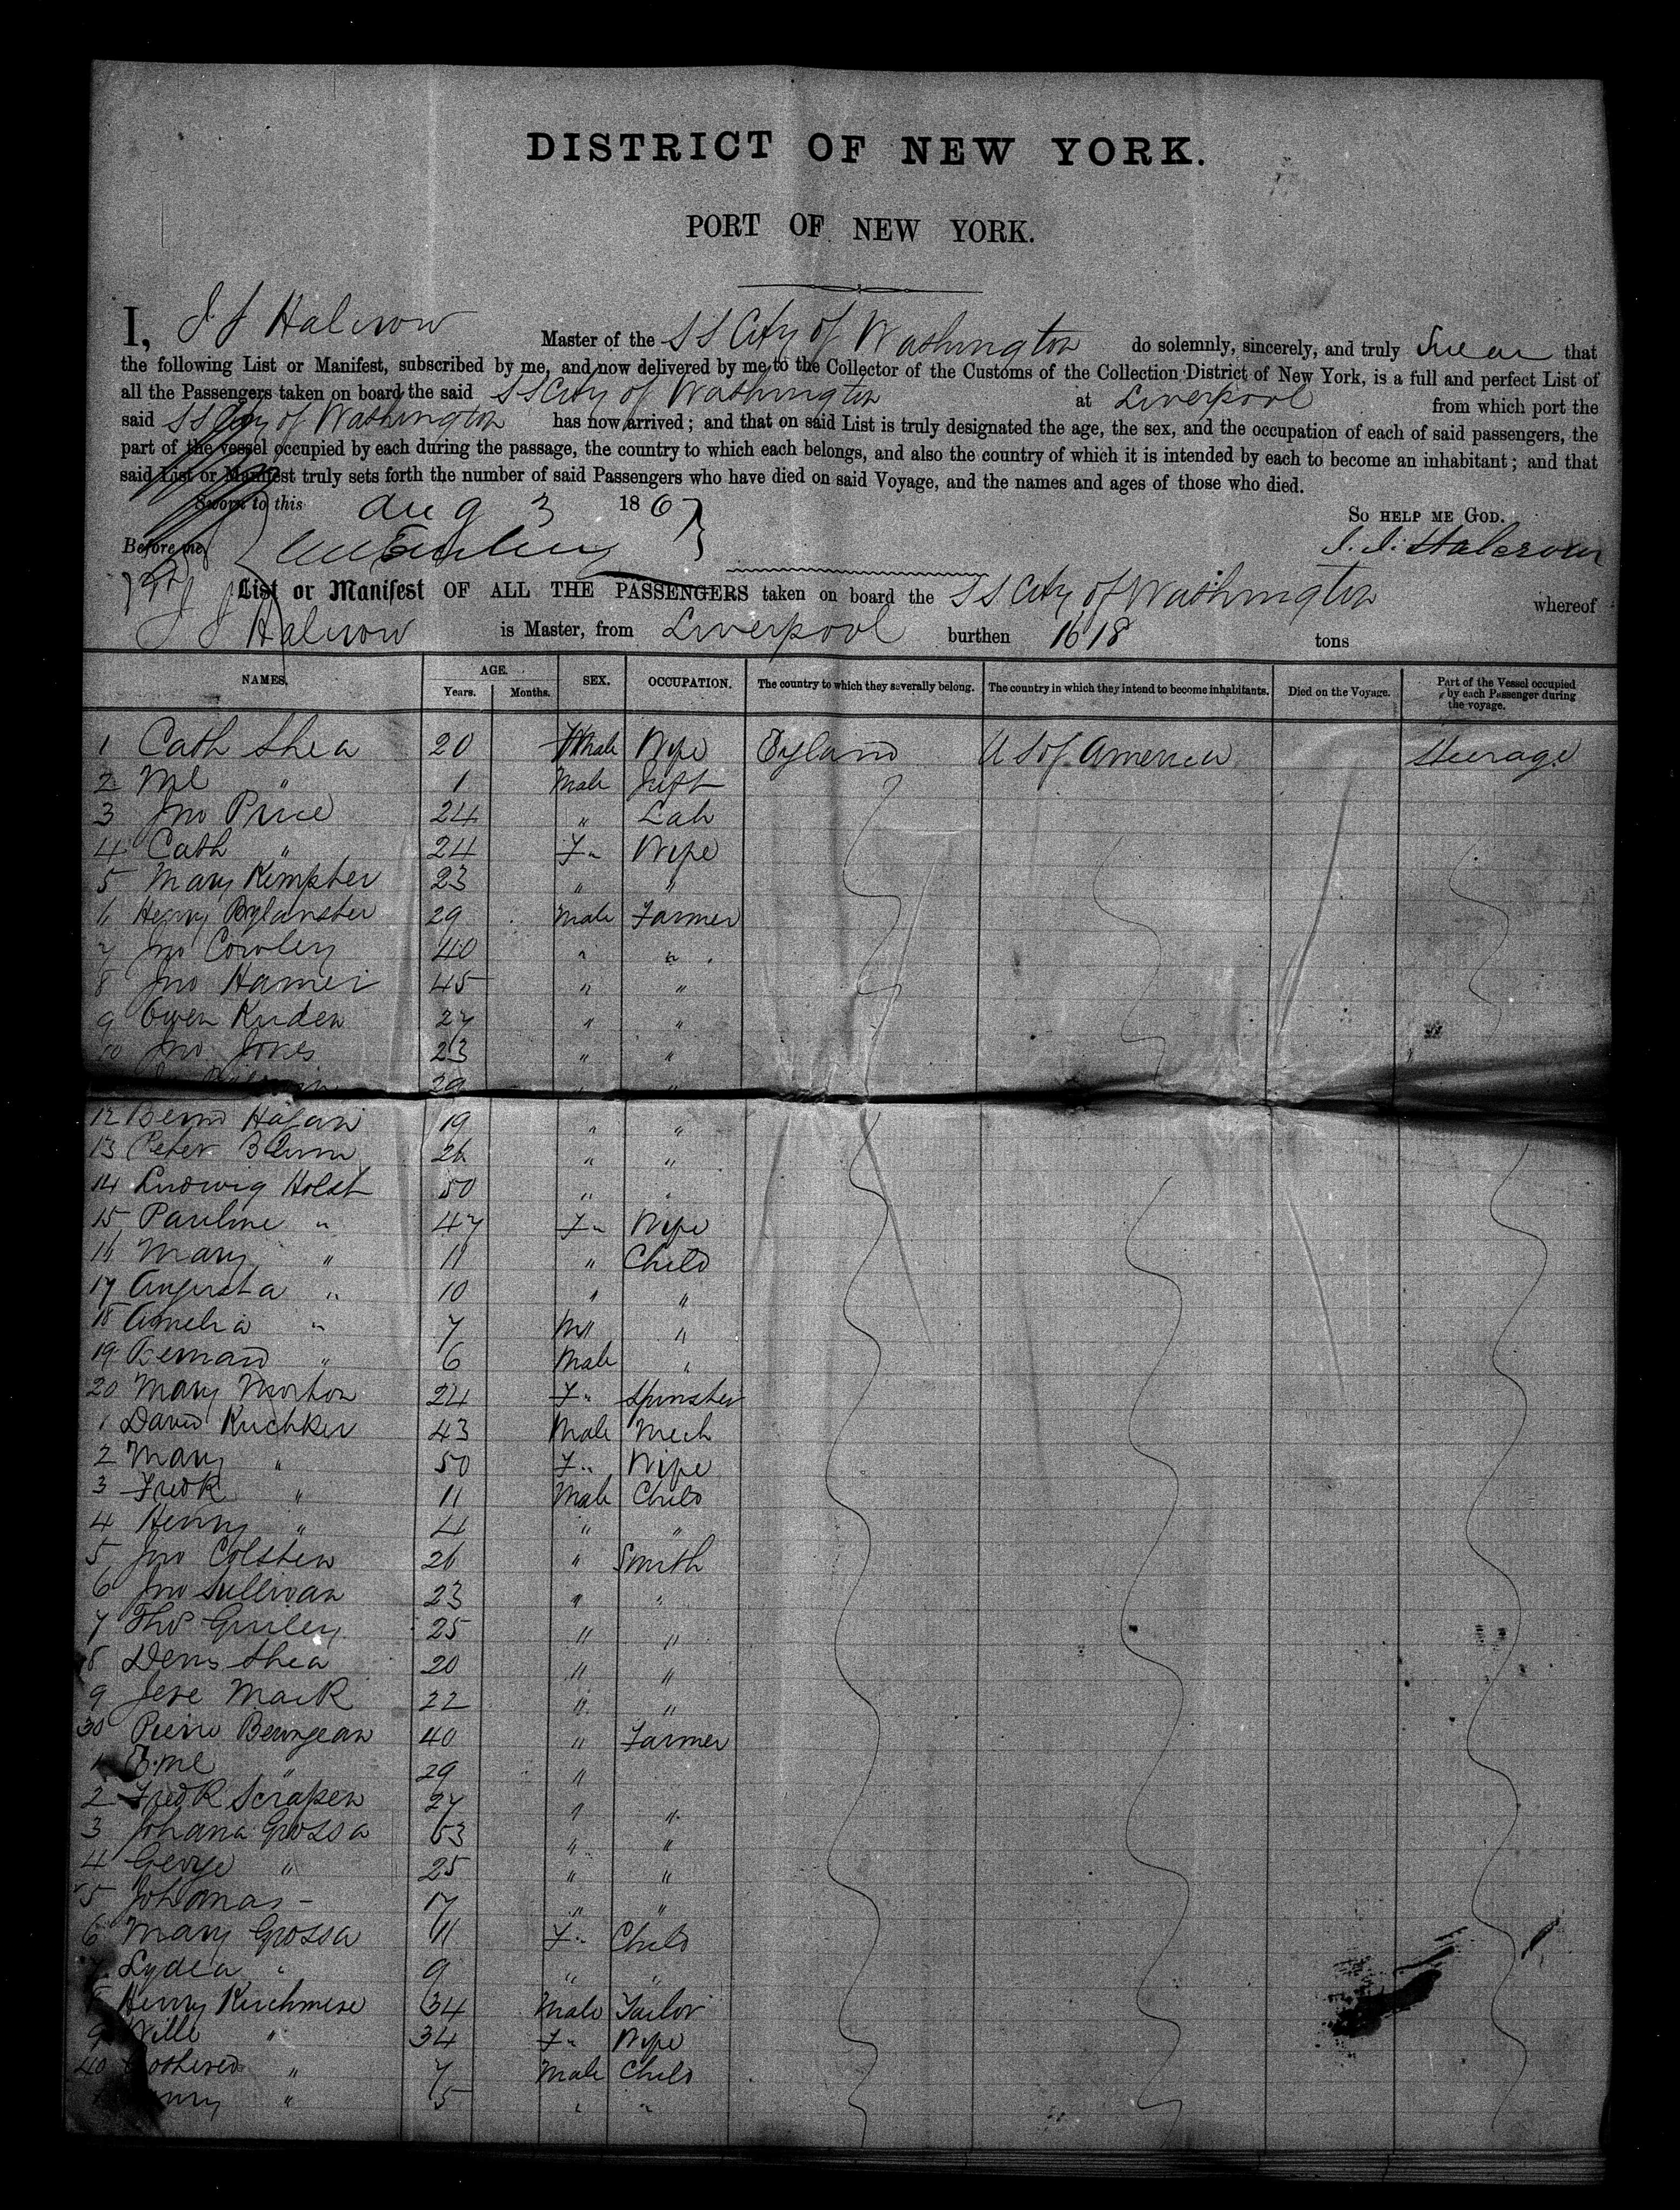 DISTRICT OF NEW YORK.
PORT OF NEW YORK.
I, J J Halcrow Master of the S S City of Washington do solemnly, sincerely, and truly Swear that
the following List or Manifest, subscribed by me, and now delivered by me to the Collector of the Customs of the Collection District of New York, is a full and perfect List of
all the Passengers taken on board the said S S City of Washington at Liverpool from which port the
said S S City of Washington has now arrived; and that on said List is truly designated the age, the sex, and the occupation of each of said passengers, the
part of the vessel occupied by each during the passage, the country to which each belongs, and also the country of which it is intended by each to become an inhabitant; and that
said List or Manifest truly sets forth the number of said Passengers who have died on said Voyage, and the names and ages of those who died.
Sworn to this Aug 3 1867
So HELP ME GOD.
Before me J. J. Halcrow
List or Manifest OF ALL THE PASSENGERS taken on board the S S City of Washington whereof
J J Halcrow is Master, from Liverpool burthen 1618 tons
NAMES. AGE. Years. Months. SEX. OCCUPATION. The country to which they severally belong. The country in which they intend to become inhabitants. Died on the Voyage. Part of the Vessel occupied by each Passenger during the voyage.
1 Cath Shea 20 Fmale Wife England U S of America Steerage
2 Ml " 1 Male Inft
3 Jno Price 24 " Lab
4 Cath " 24 F" Wife
5 Mary Kempster 23 " "
6 Henry Bylanster 29 Male Farmer
7 Jno Cowley 40 " "
8 Jno Hamer 45 " "
9 Owen Kuden 27 " "
10 Jno Jones 23 " "
29 " "
12 Bernd Hagan 19 " "
13 Peter Blum 26 " "
14 Ludwig Holst 50 " "
15 Pauline " 47 F" Wife
16 Mary " 11 " Child
17 Augusta " 10 " "
18 Amelia " 7 "
19 Bernard " 6 Male "
20 Mary Morton 24 F" Spinster
1 David Kuchker 43 Male Mech
2 Mary " 50 F" Wife
3 Fredk " 11 Male Child
4 Henry " 4 " "
5 Jno Colsten 26 " Smith
6 Jno Sullivan 23 " "
7 Thos Gurley 25 " "
8 Denis Shea 20 " "
9 Jere Mack 22 " "
30 Pierre Beurgean 40 " Farmer
1 " 29 "
2 Fredk Scrapen 27 " "
3 Johana Grossa 53 " "
4 George " 25 " "
5 Johannas - 17 " "
6 Mary Grossa 11 F" Child
7 Lydia " 9 " "
8 Henry Kirchmese 34 Male Tailor
9 Wille " 34 F" Wife
40 " 7 Male Child
" 5 " "